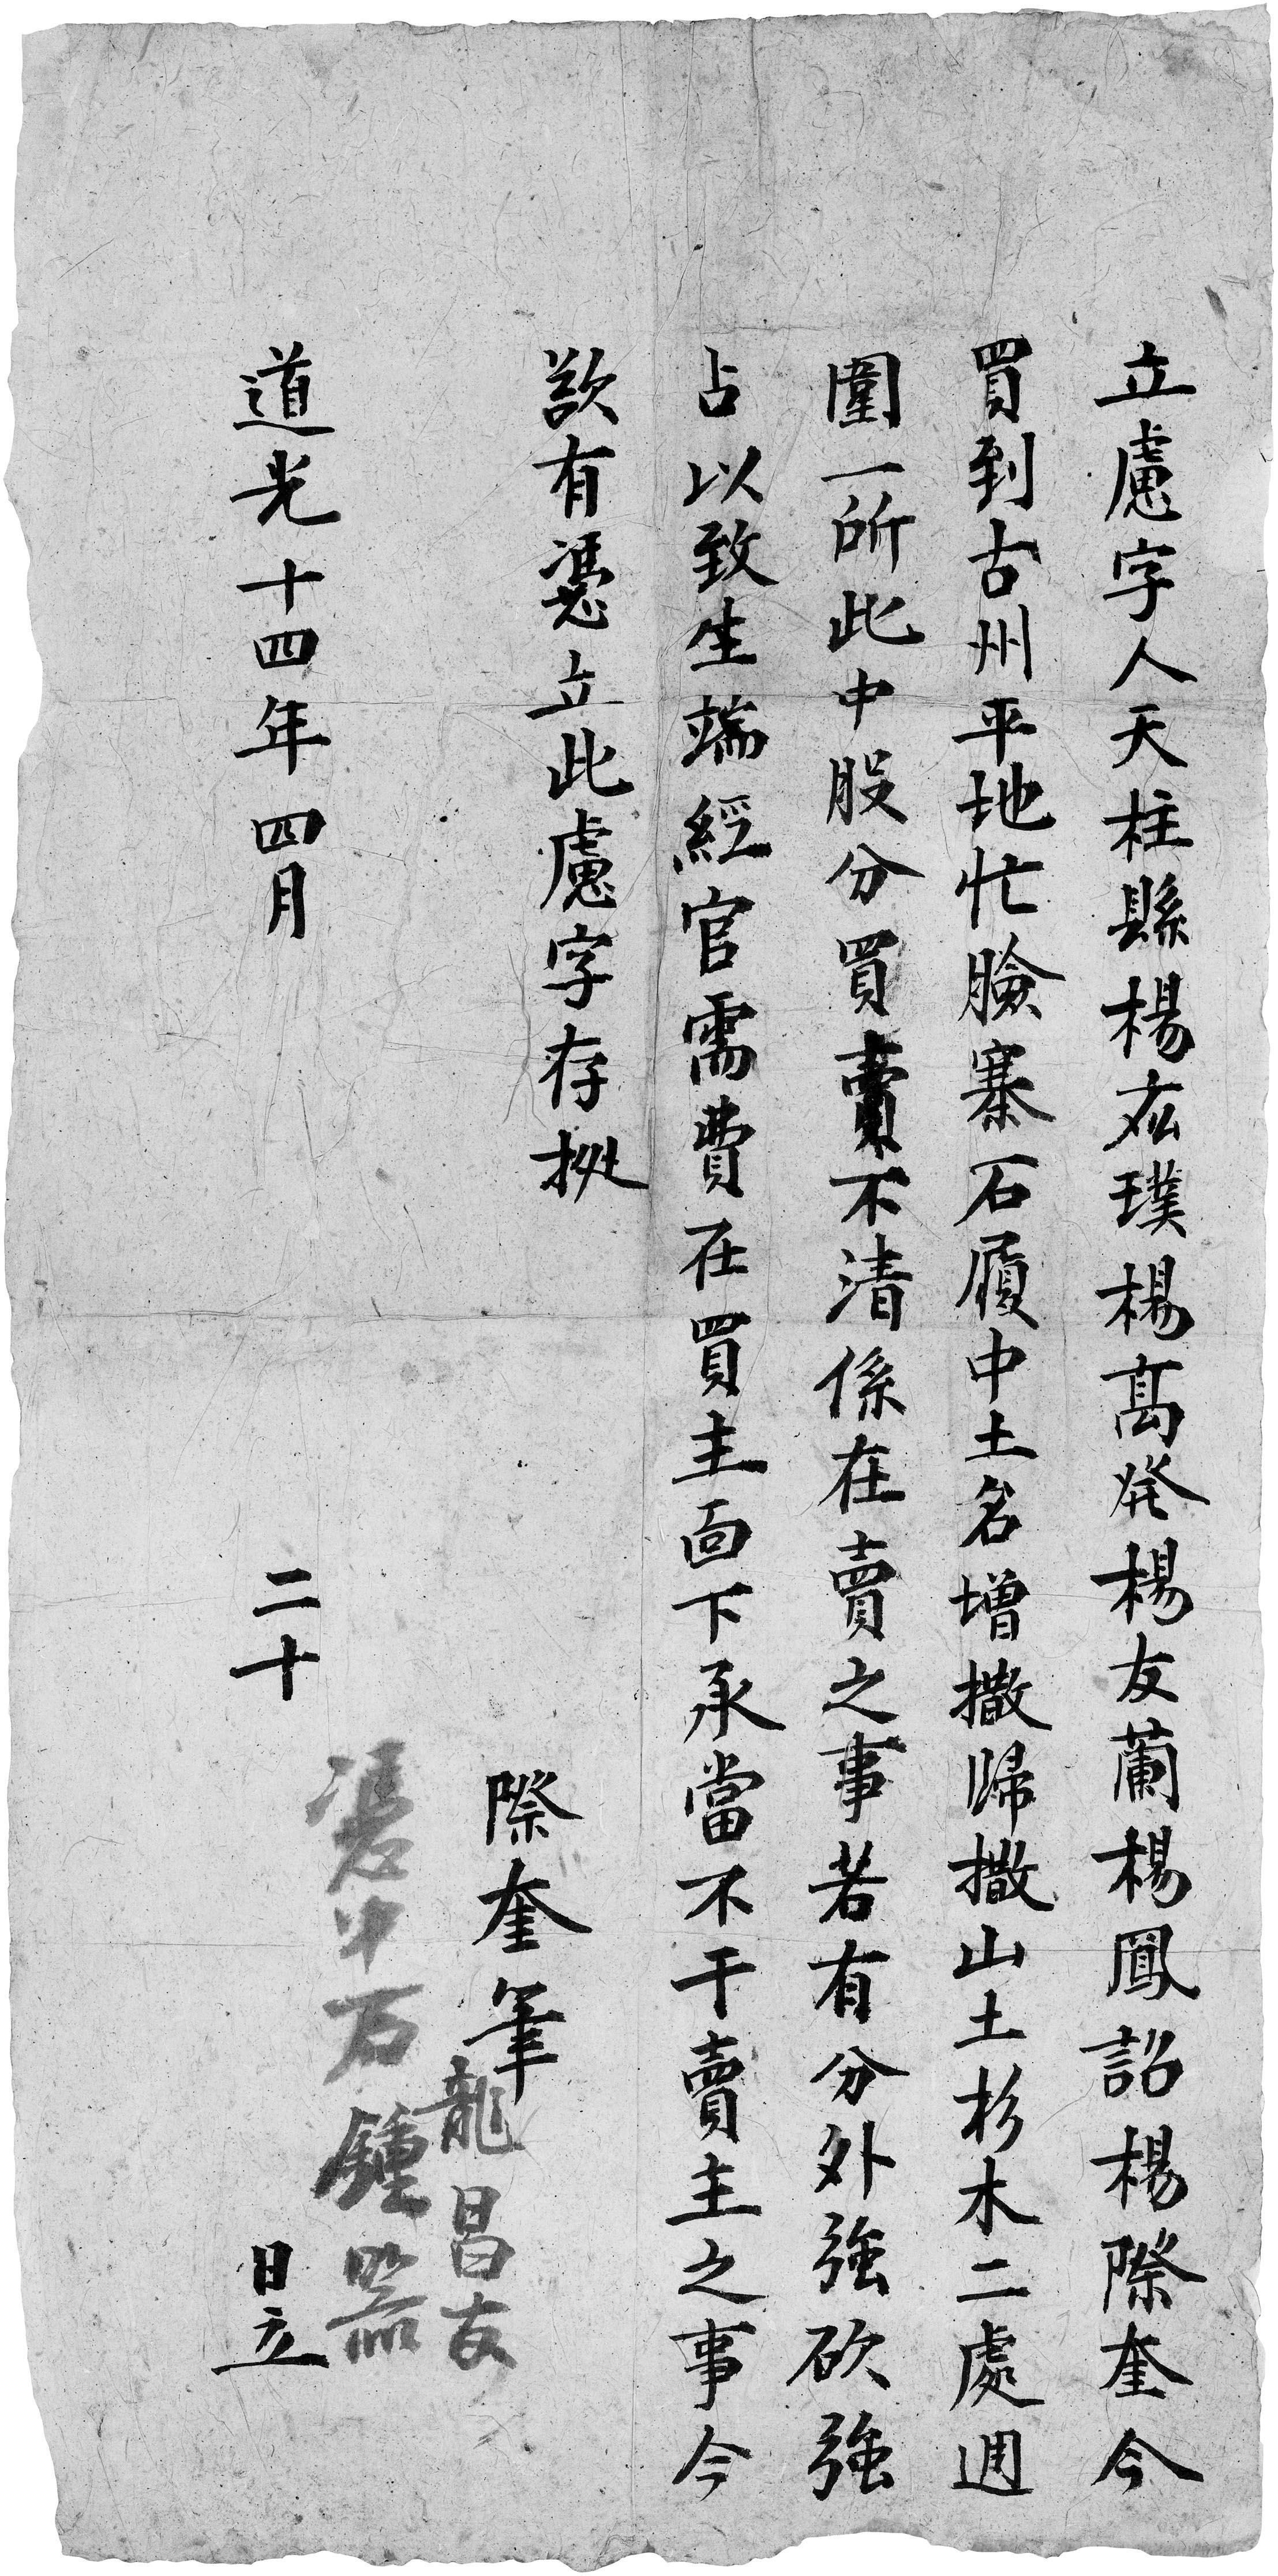 立慮字人天柱縣楊宏璞楊髙発楊友蘭楊鳳詔楊際奎今
買到古州平地忙臉寨石履中土名增撒歸撒山土杉木二處週
圍一所此中股分買賣不清係在賣之事若有分外強砍強
占以致生端經官需費在買主面下承當不干賣主之事今
欲有憑立此慮字存㩀
際奎筆
龍昌友
憑中石鍾器
道光十四年四月二十日立